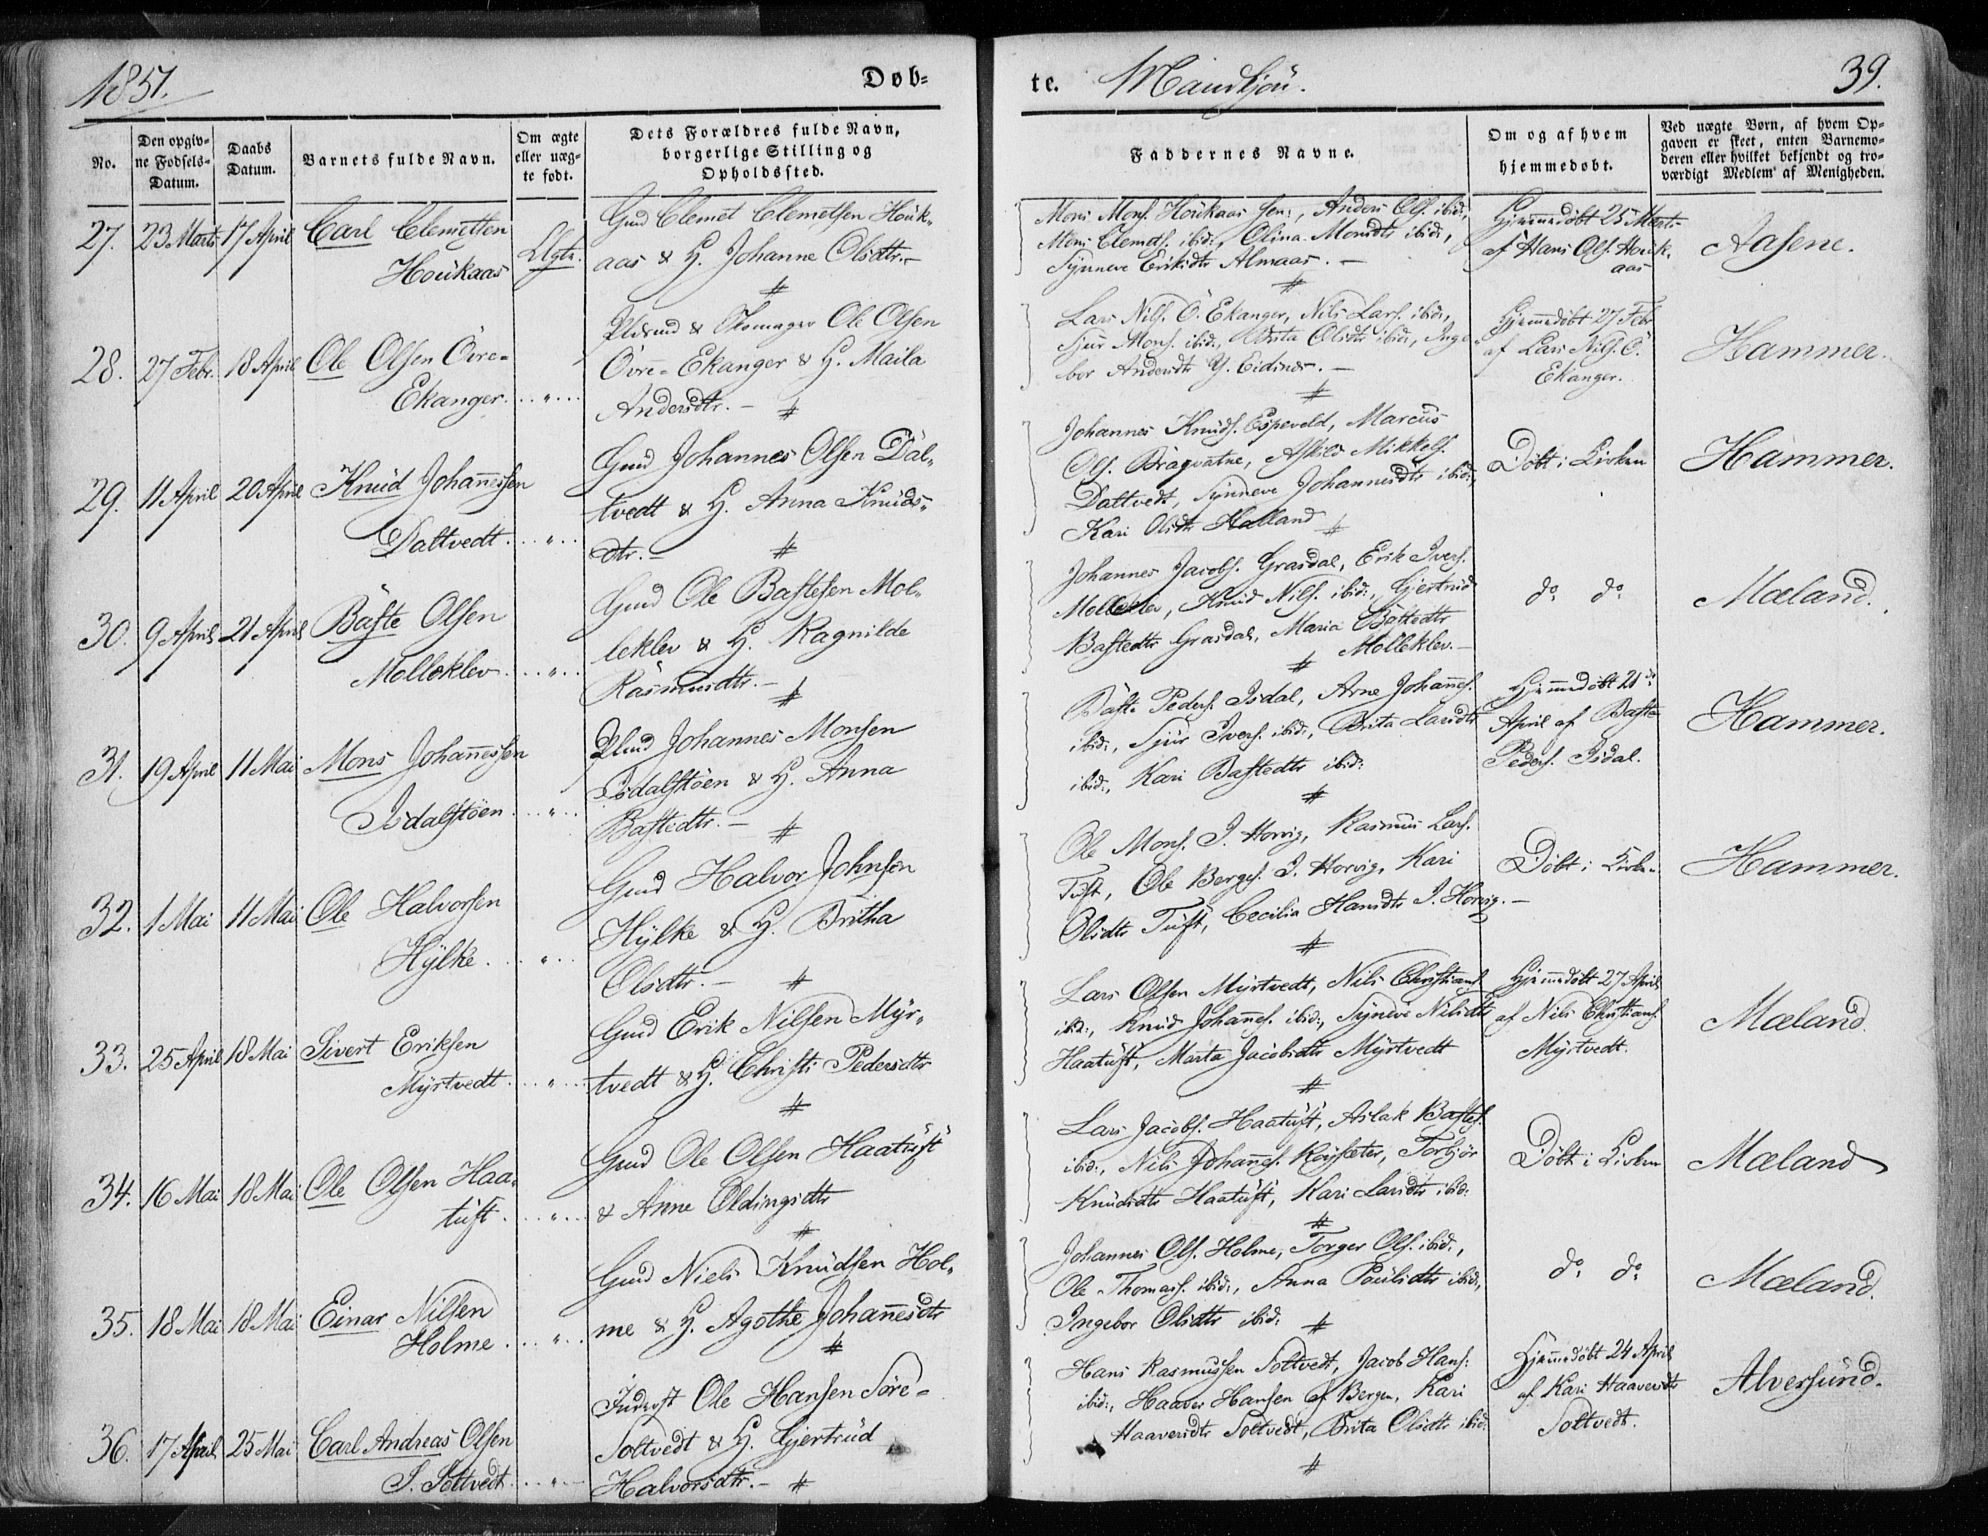 1851.
Døb=
te.
Mandkjön.
39.
No.
Den opgiv=
ne Fødsels=
Datum.
Daabs
Datum.
Barnets fulde Navn.
Om ægte
eller uæg=
te født.
Dets Forældres fulde Navn,
borgerlige Stilling og
Opholdssted.
Faddernes Navne.
Om og af hvem
hjemmedøbt.
Ved uægte Børn, af hvem Op=
gaven er skeet, enten Barnemo=
deren eller hvilket bekjendt og tro=
værdigt Medlem af Menigheden.
27. 23 Marts 17 April Carl Clemetsen
Houkaas
Gmd Clemet Clemetsen Houk-
aas & H. Johanne Olsdtr.-
Mons Mons. Houkaas sen:, Anders Ols. ibid:,
Mons Clemets. ibid:, Olina Monsdtr ibid:,
Synneve Eriksdtr Almaas. -
Hjemmedöbt 25 Marts
af Hans Ols. Houk-
aas
Aasene.
28. 27 Febr. 18 April Ole Olsen Övre-
Ekanger. .. " ..
Skomager Ole Olsen
Övre-Ekanger & H. Maila
Andersdtr. -
Lars Nils. Ö. Ekanger, Nils Lars. ibid:,
Sjur Mons. ibid:, Brita Olsdtr ibid:, Inge-
bor Andersdtr Y. Eidsnes. -
Hjemmedöbt 27 Febr
af Lars Nils. Ö.
Ekanger.
Hammer.
29. 11 April 20 April Knud Johannessen
Daltvedt. .. " ..
Gmd Johannes Olsen Dal-
tvedt & H. Anna Knuds-
dtr. -
Johannes Knuds. Espeveld, Marcus
Ols. Dragvatne, Askild Mikkels.
Daltvedt, Synneve Johannesdtr ibid:,
Kari Olsdtr Halland
Döbt i Kirken
Hammer.
30. 9 April 21 April Baste Olsen
Molleklev. .. " ..
Gmd Ole Bastesen Mol-
leklev & H. Ragnilde
Rasmusdtr. -
Johannes Jacobs. Grasdal, Erik Ivers.
Molleklev, Knud Nils. ibid:, Gjertrud
Bastedtr Grasdal, Maria Bastedtr
Molleklev. -
do do
Mæland.
31. 19 April 11 Mai Mons Johannessen
Isdalstöen. .. " ..
Johannes Monsen
Isdalstöen & H. Anna
Bastedtr. -
Baste Peders. Isdal, Arne Johanes.
ibid:, Sjur Ivers. ibid:, Brita Larsdtr
ibid:, Kari Bastedtr ibid:
Hjemmedöbt 21de
April af Baste
Peders. Isdal.
Hammer.
32. 1 Mai 11 Mai Ole Halvorsen
Hylke. .. " ..
Gmd Halvor Johnsen
Hylke & H. Britha
Olsdtr. -
Ole Mons. I. Horvig, Rasmus Lars.
Tuft, Ole Berges. I. Horvig, Kari
Olsdtr Tuft, Cecilia Hansdtr I. Horvig. -
Döbt i Kirken
Hammer.
33. 25 April 18 Mai Sivert Eriksen
Myrtvedt. .. " ..
Gmd Erik Nilsen Myr-
tvedt & H. Christi Pedersdtr
Lars Olsen Myrtvedt, Nils Christians.
ibid:, Knud Johanes. ibid:, Syneve Nilsdtr
Haatuft, Marta Jacobsdtr Myrtvedt
Hjemmedöbt 27 April
af Nils Christians.
Myrtvedt.
Mæland.
34. 16 Mai 18 Mai Ole Olsen Haa-
tuft. .. " ..
Gmd Ole Olsen Haatuft
& Anne Oldingsdtr
Lars Jacobs. Haatuft, Aslak Bastes.
ibid:, Nils Johanes. Röisäter, Torbjör
Knudsdtr Haatuft, Kari Larsdtr ibid:
Döbt i Kirken
Mæland
35. 18 Mai 18 Mai Einar Nilsen
Holme. .. " ..
Gmd Niels Knudsen Hol-
me & H. Agothe Johanesdtr
Johannes Ols. Holme, Torger Ols. ibid:,
Ole Thomas. ibid:, Anna Poulsdtr ibid:,
Ingebor Olsdtr ibid:
do do
Mæland.
36. 17 April 25 Mai Carl Andreas Olsen
S. Soltvedt. .. " ..
Inderst Ole Hansen Söre-
Soltvedt & H. Gjertrud
Halvorsdtr. -
Hans Rasmussen Soltvedt, Jacob Hans.
ibid:, Haaver Hansen af Bergen, Kari
Haaversdtr Soltvedt, Brita Olsdtr ibid:
Hjemmedöbt 24 April
af Kari Haaversdtr
Soltvedt.
Alversund.